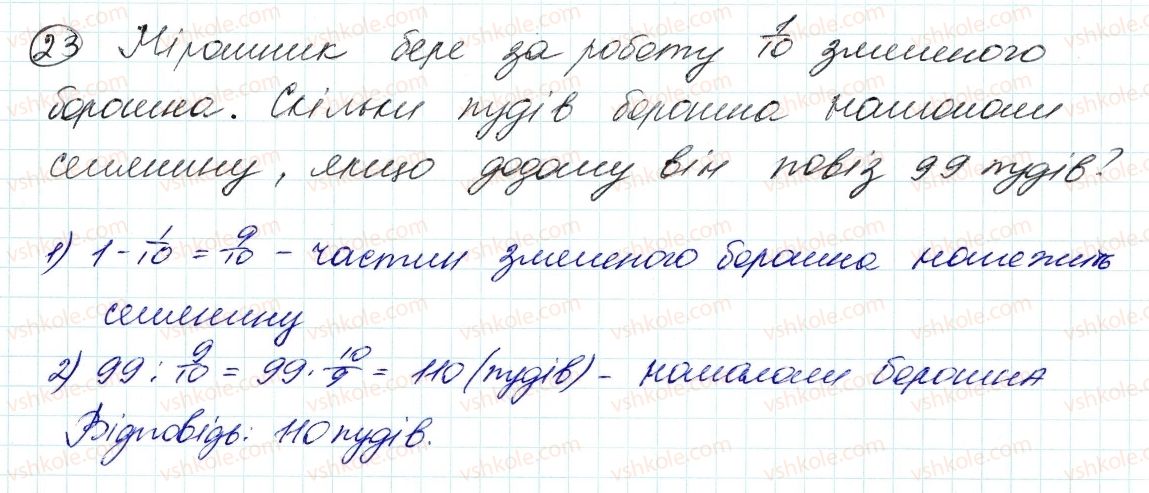 23 Мірошник бере за роботу 1/10 змеленого
борошна. Скільки пудів борошна намололи
селянину, якщо додому він повіз 99 пудів?
1) 1 - 1/10 = 9/10 - частин змеленого борошна належить
селянину
2) 99 : 9/10 = 99 · 10/9 = 110 (пудів) - намололи борошна
Відповідь: 110 пудів.